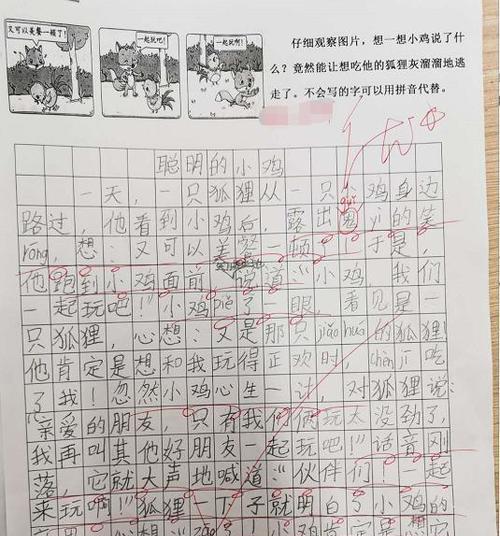 又可以美餐一顿了！
一起玩吧！
一起玩啊！
仔细观察图片，想一想小鸡说了什
么？竟然能让想吃他的狐狸灰溜溜地逃
走了。不会写的字可以用拼音代替。
聪明的小鸡
一天，一只狐狸从一只小鸡身边
路过，他看到小鸡后，露出 yì的笑
róng，想：又可以美餐一顿了！于是，
他跑到小鸡面前，说道：“小鸡，我们
一起玩吧！”小鸡piē了一眼，看见是一
只狐狸，心想：又是那只jiǎo huá的狐狸！
他肯定是想和我玩得正欢时，chèn jī吃
了我！忽然小鸡心生一计，对狐狸说：
“亲爱的朋友，只有我们俩玩太没劲了，
我再叫其他好朋友一起玩吧！”话音刚
落，它就大声地喊道：“伙伴们！一起
来玩啊！”狐狸一下子就明白了小鸡的